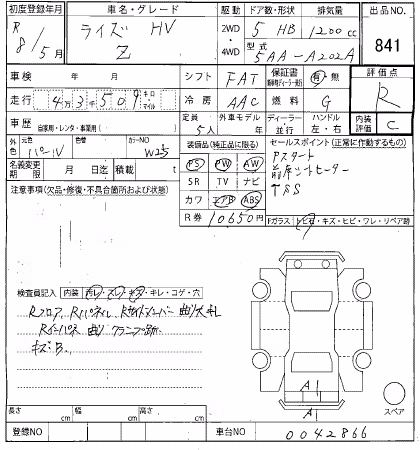 初度登録年月 車名・グレード 駆動 ドア数・形状 排気量 出品NO.
R 8/5月 ライズ HV Z 2WD ・ 4WD 5 HB 1200cc 841
型式 5AA-A202A
車検 年 月 シフト FAT 保証書 有・無 評価点
走行 4万3千509 キロ マイル 冷房 AAC 燃料 G R
車歴 自家用・レンタ・事業用( ) 定員 5人 外車モデル 年 ディーラー ・ 並行 ハンドル 左・右 内装評価 C
外色 元色 パールV 色替 カラーNO W25
装備品(純正品に限る) セールスポイント(正常に作動するもの)
名義変更期限 月 日迄 積載 t
PS PW AW Pスタート
SR TV ナビ 前席シートヒーター
カワ エアB ABS TSS
注意事項(欠品・修復・不具合箇所および状態)
R券 10650円 Fガラス トビ石・キズ・ヒビ・ワレ・リペア跡
検査員記入 内装 汚レ・スレ・キズ・キレ・コゲ・穴
Rフロア、Rバックパネル Rサイドメンバー 曲リ
Rインパネ 曲リ クランプ跡
キズB.
A1
A1
スペア
長さ cm 幅 cm 高さ cm
登録NO 車台NO 0042866